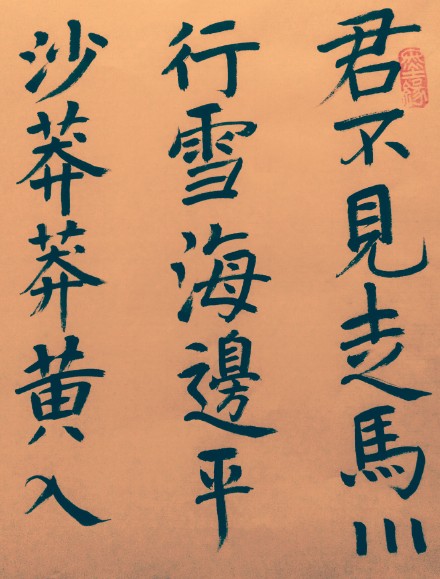 君不見走馬川
行雪海邊平
沙莽莽黃入